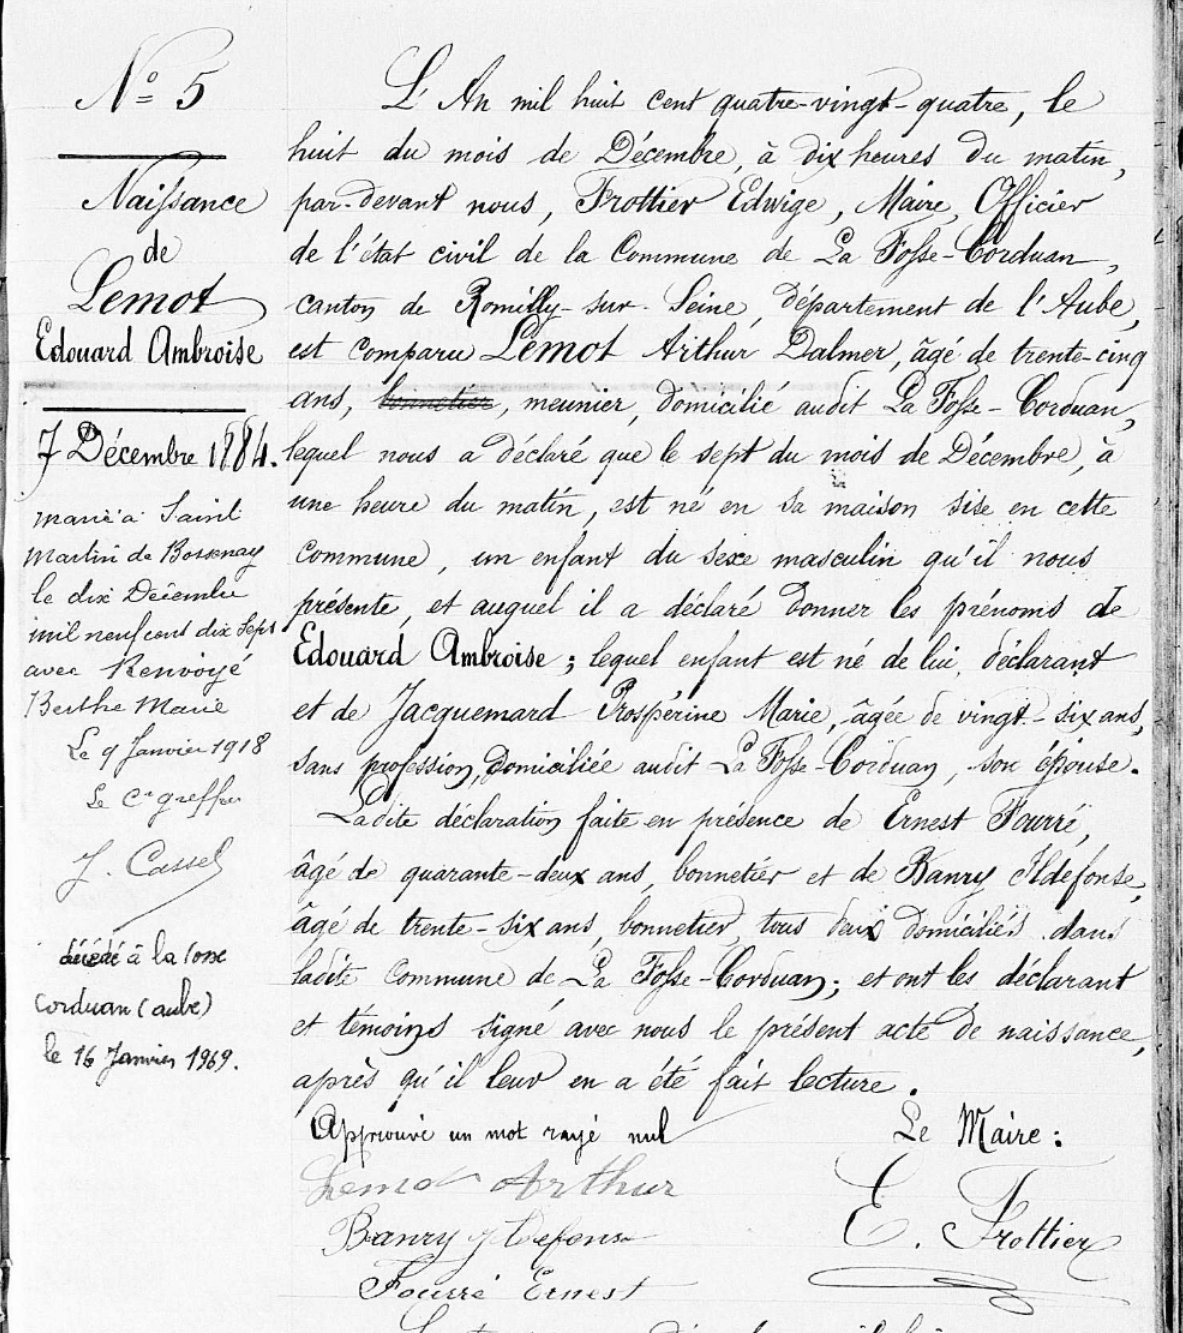 N° 5
Naissance
de
Lemot
Edouard Ambroise
7 Décembre 1884.
marié à Saint
Martin de Bossenay
le dix Décembre
mil neuf cent dix sept
avec Renvoyé
Berthe Marie
Le 9 Janvier 1918
Le Cis greffier
J. Cassel
décédé à la Fosse
Corduan (aube)
le 16 Janvier 1969.
L'An mil huit cent quatre-vingt-quatre, le
huit du mois de Décembre, à dix heures du matin,
par-devant nous, Frottier Edwige, Maire, Officier
de l'état civil de la Commune de La Fosse-Corduan,
canton de Romilly-sur-Seine, département de l'Aube,
est comparu Lemot Arthur Dalmer, âgé de trente-cinq
ans, bonnetier, meunier, domicilié audit La Fosse-Corduan,
lequel nous a déclaré que le sept du mois de Décembre, à
une heure du matin, est né en sa maison sise en cette
commune, un enfant du sexe masculin qu'il nous
présente, et auquel il a déclaré donner les prénoms de
Edouard Ambroise ; lequel enfant est né de lui, déclarant
et de Jacquemard Prospérine Marie, âgée de vingt-six ans,
sans profession, domiciliée audit La Fosse-Corduan, son épouse.
Ladite déclaration faite en présence de Ernest Fourré,
âgé de quarante-deux ans, bonnetier et de Banry Ildefonse,
âgé de trente-six ans, bonnetier, tous deux domiciliés dans
ladite Commune de La Fosse-Corduan ; et ont les déclarant
et témoins signé avec nous le présent acte de naissance,
après qu'il leur en a été fait lecture.
Approuvé un mot rayé nul
Le Maire :
Lemot Arthur
Banry Ildefonse
Fourré Ernest
E. Frottier